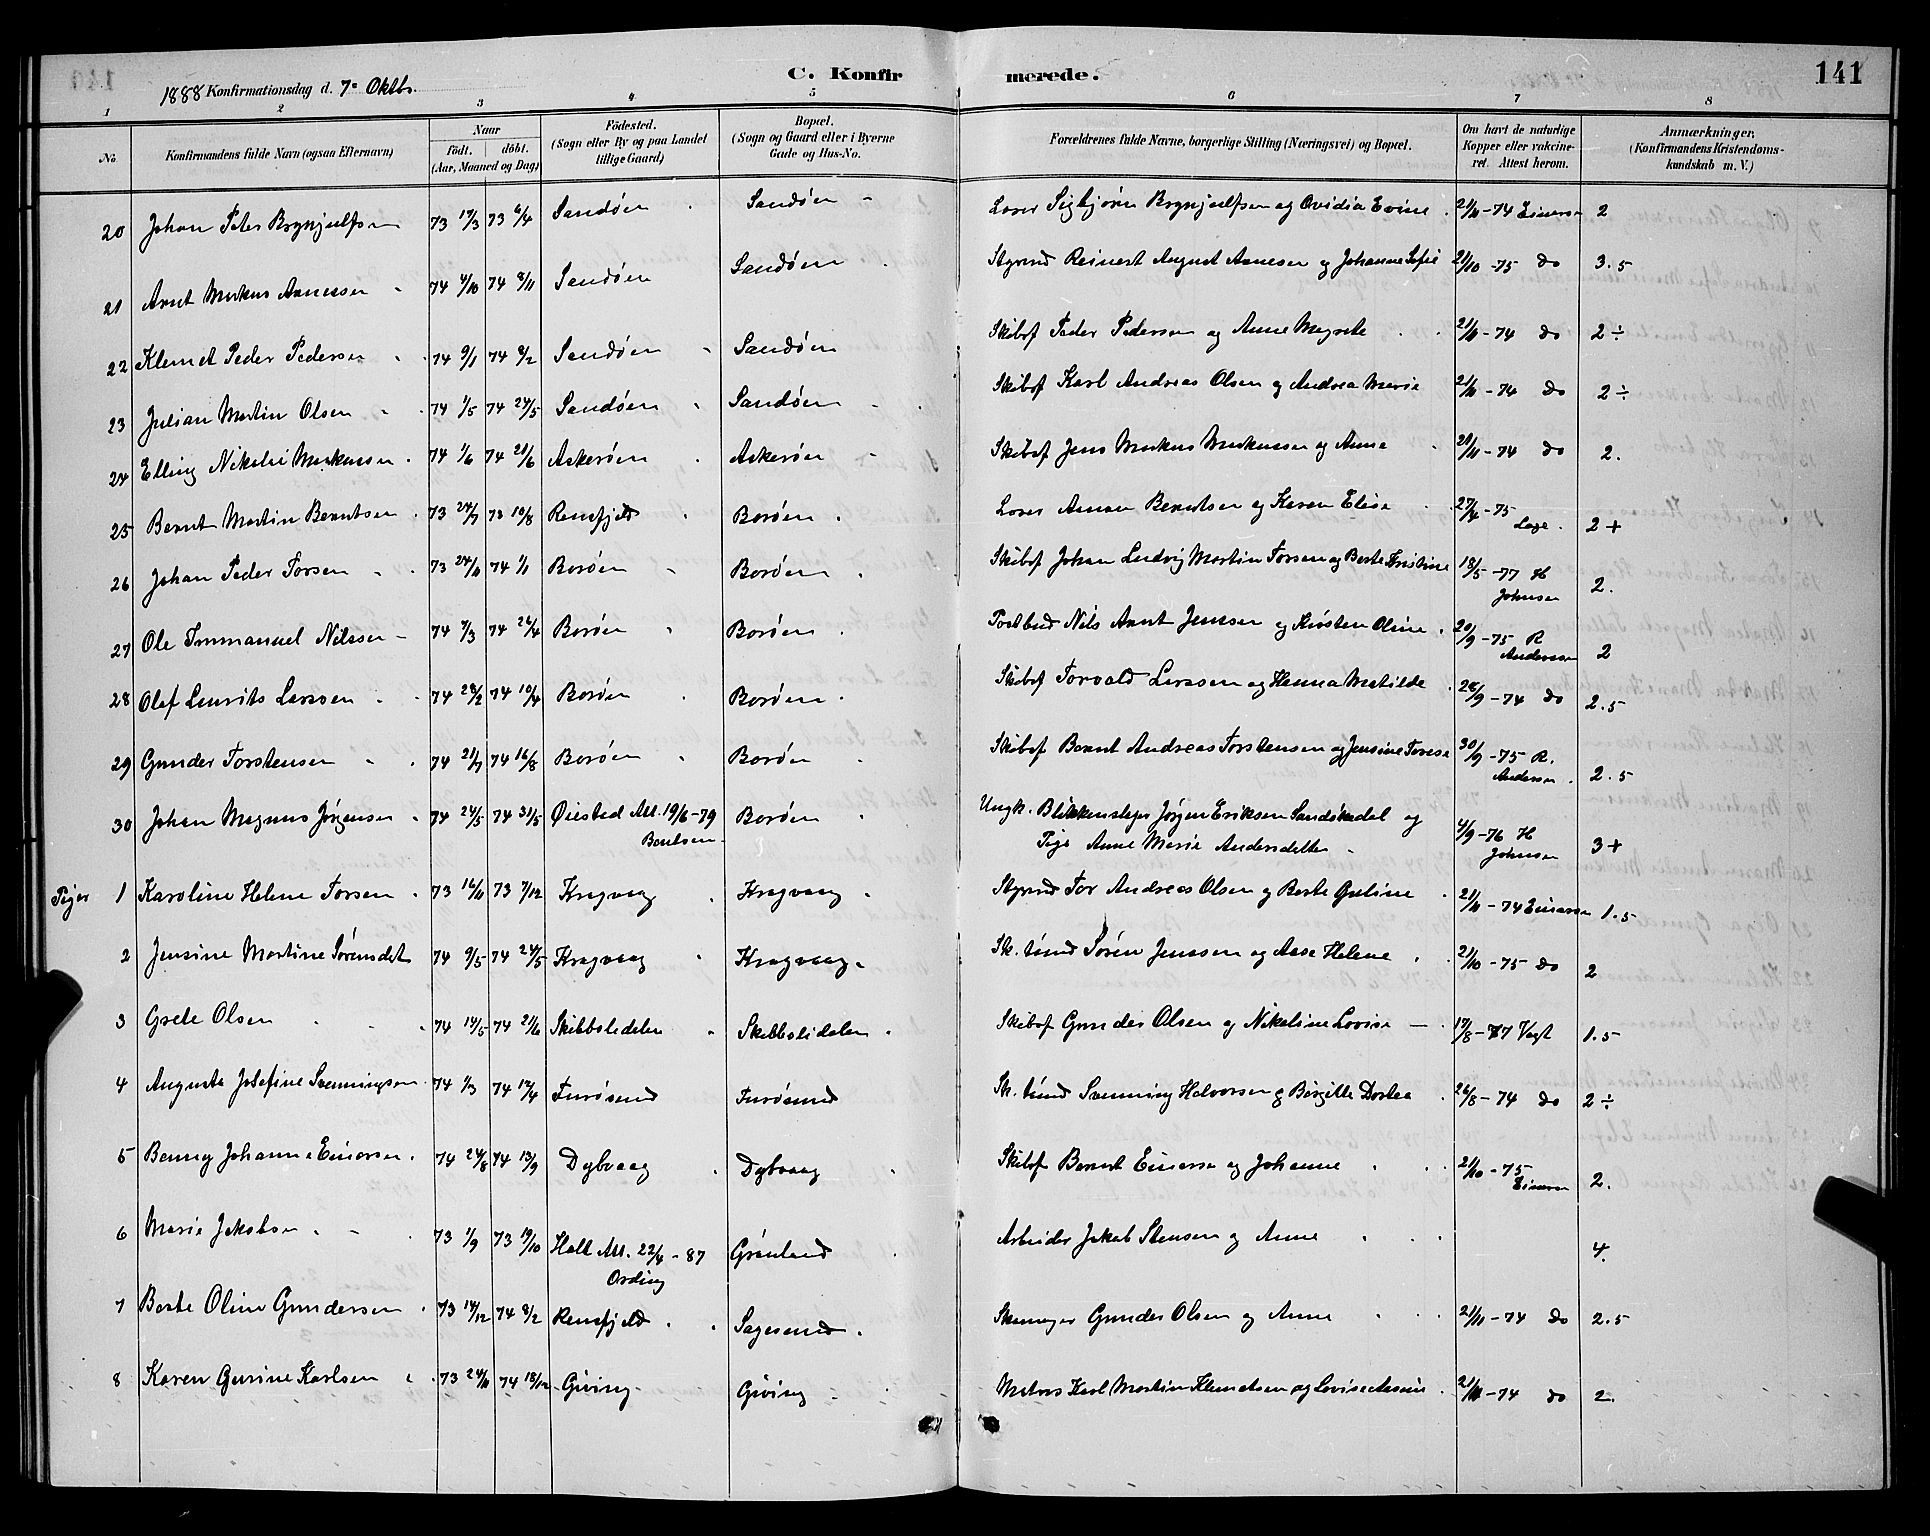 C. Konfirmerede. 141
1888 Konfirmationsdag d. 7de Oktbr.
1 2 3 4 5 6 7 8
No Konfirmandens fulde Navn (ogsaa Efternavn) Naar födt. döbt. (Aar, Maaned og Dag) Födested. (Sogn eller By og paa Landet tillige Gaard) Bopæl. (Sogn og Gaard eller i Byerne Gade og Hus-No. Forældrenes fulde Navne, borgerlige Stilling (Næringsvei) og Bopæl. Om havt de naturlige Kopper eller vakcineret. Attest herom. Anmærkninger. (Konfirmandens Kristendomskundskab m. V.)
20 Johan Peter Brynjulfsen 73 17/3 73 6/4 Sandøen Sandøen Loser Sigbjørn Brynjulfsen og Ovidia Evine 21/11 -74 Einersen 2
21 Arnt Markus Arnesen 74 4/10 74 8/11 Sandøen Sandøen Styrmd Reinert August Arnesen og Johanne Sofie 21/10 -75 do 3.5
22 Klemet Peder Pedersen 74 9/1 74 8/2 Sandøen Sandøen Skibsf Peder Pedersen og Anne Magrete 21/11 -74 do 2 ÷
23 Julian Martin Olsen 74 1/5 74 24/5 Sandøen Sandøen Skibsf Karl Andreas Olsen og Andrea Marie 21/11 -74 do 2 ÷
24 Elling Nikolai Markussen 74 1/6 74 21/6 Askerøen Askerøen Skibsf Jens Markus Markussen og Anne 21/11 -74 do 2.
25 Bernt Martin Berntsen 73 24/7 73 10/8 Ramsfjeld Borøen Loser Aanon Berntsen og Karen Elise 27/4 -75 Lage. 2 +
26 Johan Peder Torsen 73 24/11 74 1/1 Borøen Borøen Skibsf Johan Ludvig Martin Torsen og Berte Kristine 18/5 -77 H Johnsen 2.
27 Ole Immanuel Nilssen 74 7/3 74 26/4 Borøen Borøen Postbud Nils Arnt Jenssen og Kirsten Oline 20/9 -75 R Andersen 2
28 Olaf Laurits Larssen 74 28/2 74 10/4 Borøen Borøen Skibsf Torvald Larssen og Hanna Matilde 28/9 -74 do 2.5
29 Gunder Torstensen 74 21/7 74 16/8 Borøen Borøen Skibsf Bernt Andreas Torstensen og Jensine Torese 30/9 -75 R. Andersen 2.5
30 Johan Magnus Jørgensen 74 24/5 74 31/5 Øiestad Att. 19/6-79 Berntsen Borøen Ungk. Blikkenslager Jørgen Eriksen Sandskedal og
Pige Anne Marie Andersdatter 4/9 -76 H Johnsen 3 +
Piger 1 Karoline Helene Torsen 73 16/11 73 7/12 Kragvaag Kragvaag Styrmd Tor Andreas Olsen og Berte Guline 21/11 -74 Einersen 1.5
2 Jensine Martine Sørensdat 74 9/5 74 24/5 Kragvaag Kragvaag Sk. tømd Søren Jenssen og Aase Helene 21/10 -75 do 2
3 Grete Olsen 74 14/5 74 21/6 Skibbslidalen Skibbslidalen Skibsf Gunder Olsen og Nikoline Lovise 17/8 -77 Vogt 1.5
4 Augusta Josefine Svenningsen 74 1/3 74 12/4 Furøsund Furøsund Sk. tømd Svenning Halvorsen og Birgitte Dortea 26/8 -74 do 2 ÷
5 Benny Johanne Einersen 74 24/8 74 13/9 Dybvaag Dybvaag Skibsf Bernt Einersen og Johanne 21/10 -75 Einersen 2.
6 Marie Jakobsen 73 1/9 73 19/10 Holt Att. 22/4 -87 Ording Grønland Arbeider Jakob Stensen og Anne 4.
7 Berte Oline Gundersen 73 14/12 74 8/2 Ramsfjeld Sagesund Skomager Gunder Olsen og Anne 21/11 -74 do 2.5
8 Karen Gurine Karlsen 73 24/11 74 18/12 Giving Giving Matros Karl Martin Klemetsen og Lovise 21/11 -74 do 2.